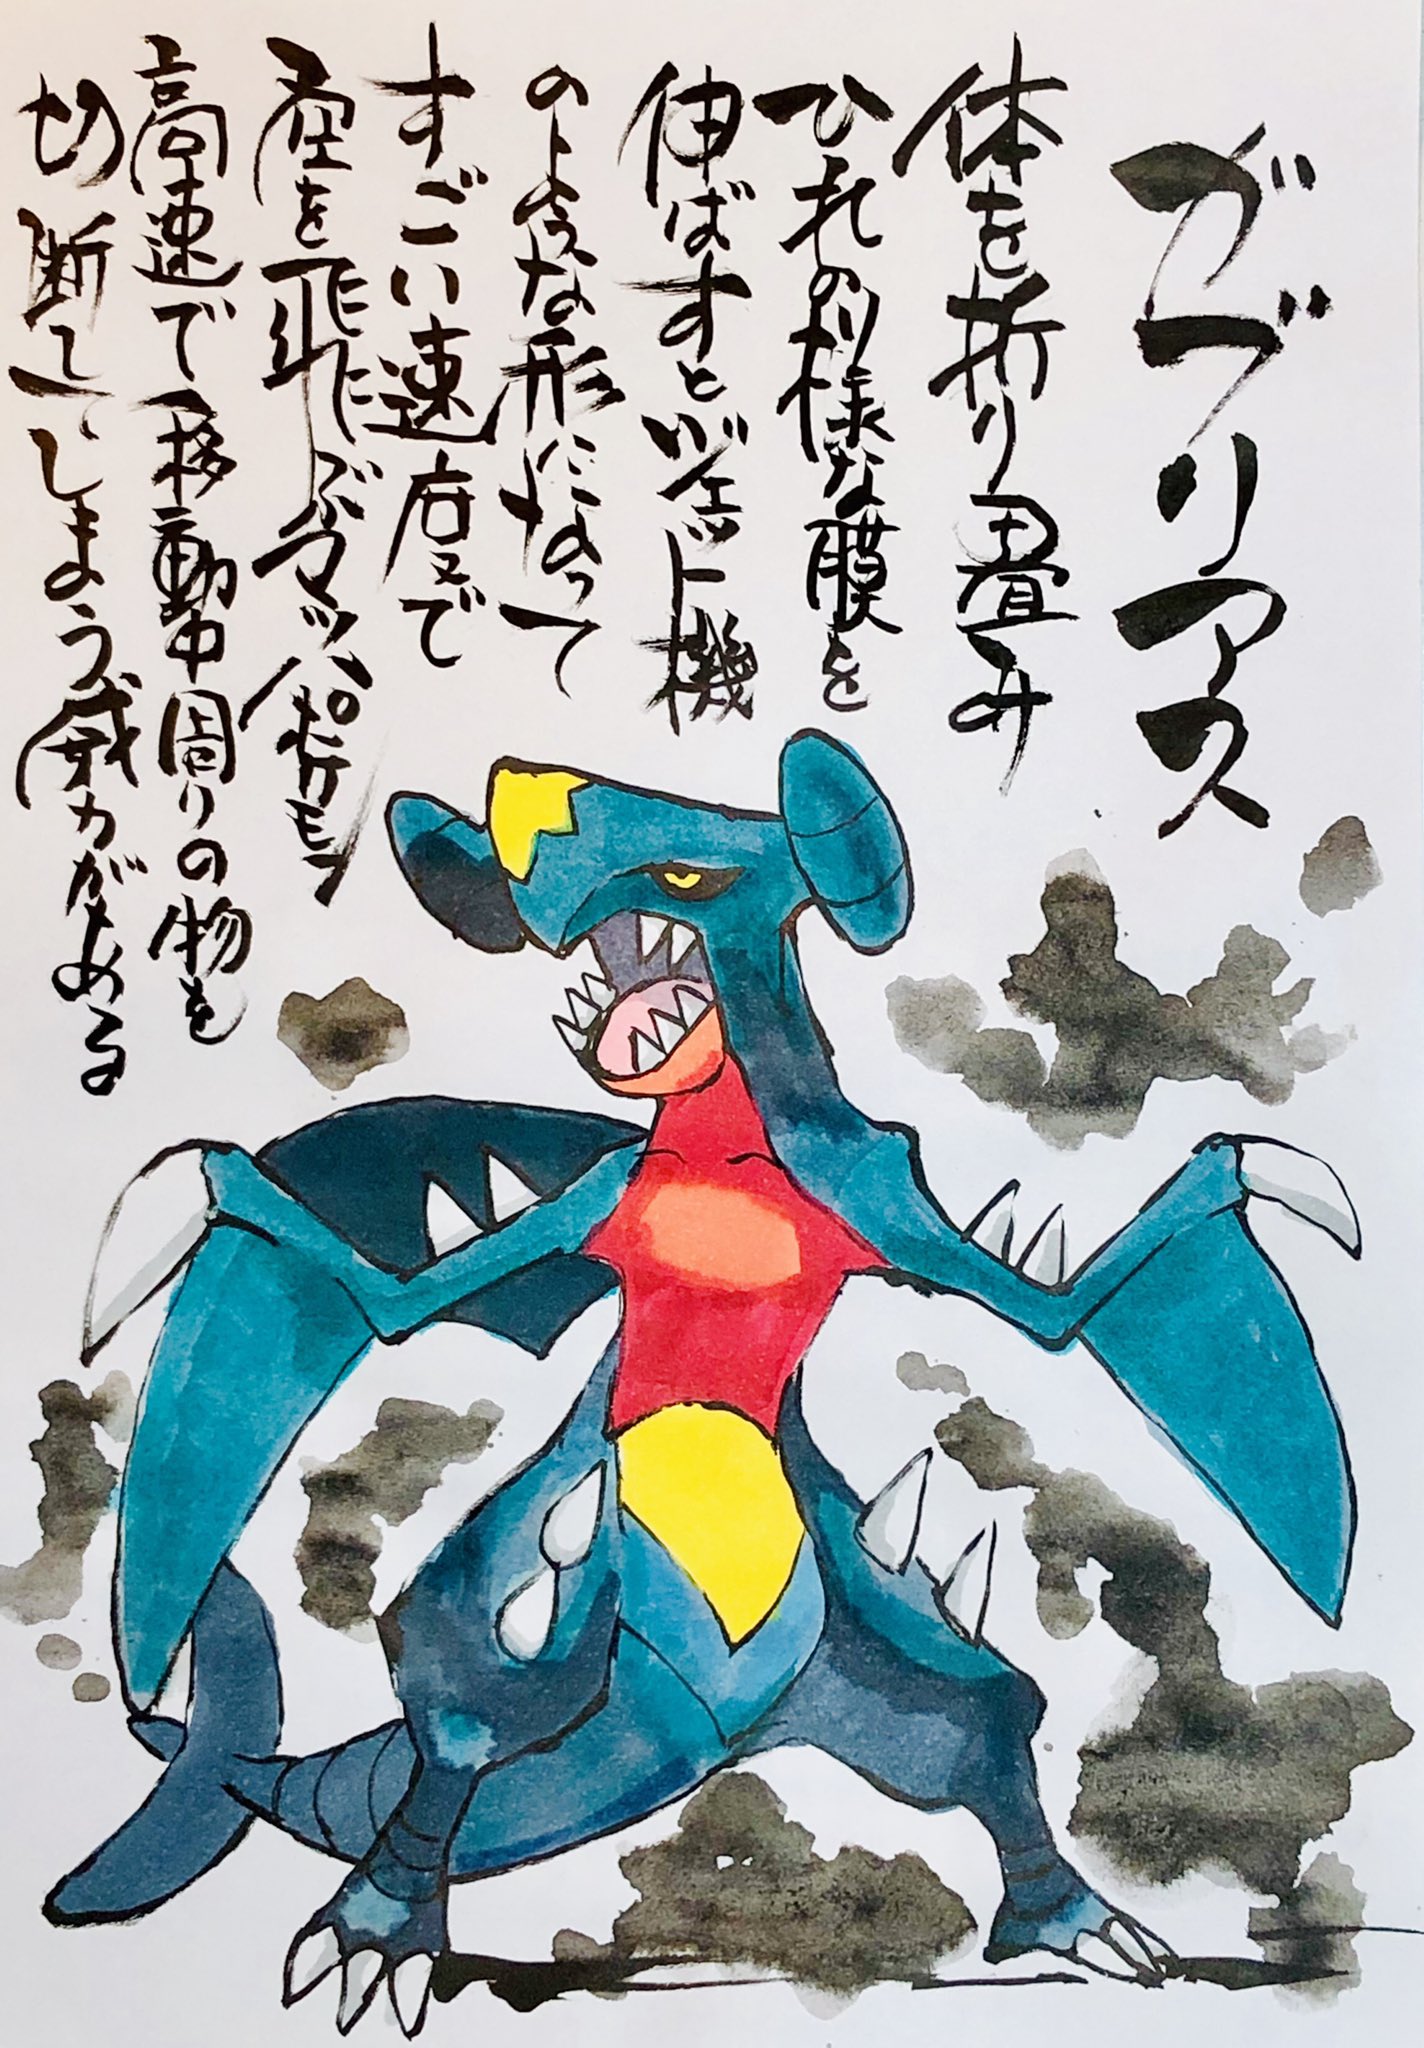 ガブリアス
体を折り畳み
ひれの様な膜を
伸ばすとジェット機
のような形になって
すごい速度で
空を飛ぶマッハポケモン
高速で移動中周りの物を
切断してしまう威力がある